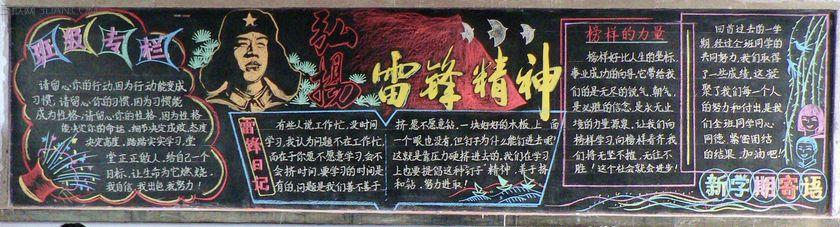 班级专栏
请留心你的行动,因为行动能变成
习惯,请留心你的习惯,因为习惯能
成为性格;请留心你的性格,因为性格
能决定你的命运,细节决定成败,态度
决定高度,踏踏实实学习,堂
堂正正做人,给自己一个
目标,让生命为它燃烧,
我自信,我出色,我努力!
弘扬
雷锋精神
雷锋日记
有些人说工作忙,没时间
学习,我认为问题不在工作忙,
而在于你愿不愿意学习,会不
会挤时间,要学习的时间是
有的,问题是我们善不善于
挤,愿不愿意钻,一块好好的木板,上面
一个眼也没有,但钉子为什么能钉进去呢?
这就是靠压力硬挤进去的,我们在学习
上也要提倡这种钉子"精神,善于挤
和钻,努力进取!
榜样的力量
榜样好比人生的坐标,
事业成功的向导,它带给我
们的是无尽的锐气、朝气,
是必胜的信念,是永无止
境的力量源泉,让我们向
榜样学习,向榜样看齐,我
们将无坚不摧,无往不
胜!这个社会就会进步!
回首过去的一学
期,经过全班同学的
共同努力,我们取得
了一些成绩,这凝
聚了我们每一个人
的努力和付出,是我
们全班同学同心
同德,紧密团结
的结果,加油吧!!
新学期寄语